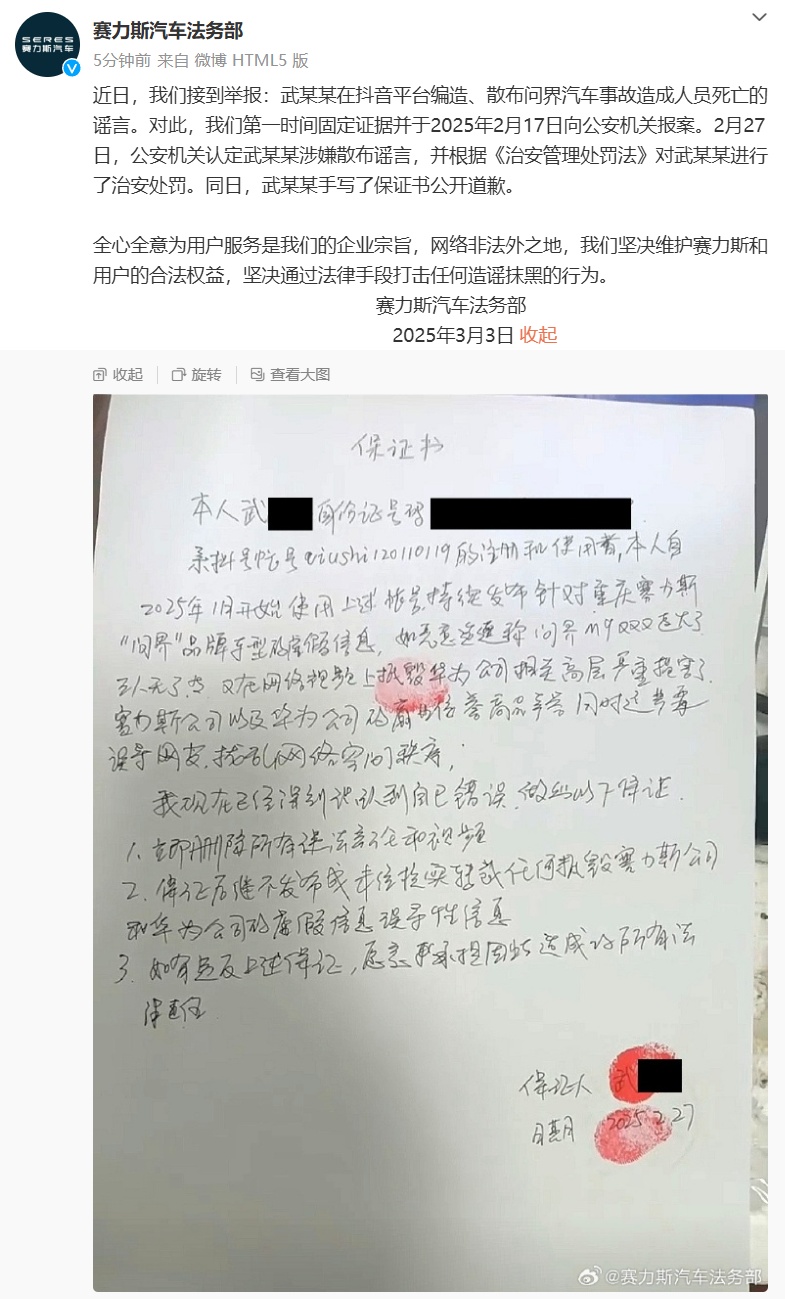 SERES
赛力斯汽车
赛力斯汽车法务部
5分钟前 来自 微博 HTML5 版
近日，我们接到举报：武某某在抖音平台编造、散布问界汽车事故造成人员死亡的
谣言。对此，我们第一时间固定证据并于2025年2月17日向公安机关报案。2月27
日，公安机关认定武某某涉嫌散布谣言，并根据《治安管理处罚法》对武某某进行
了治安处罚。同日，武某某手写了保证书公开道歉。
全心全意为用户服务是我们的企业宗旨，网络非法外之地，我们坚决维护赛力斯和
用户的合法权益，坚决通过法律手段打击任何造谣抹黑的行为。
赛力斯汽车法务部
2025年3月3日 收起
收起 旋转 查看大图
保证书
本人武 身份证号码
系抖号帐号qiushi120110119的注册和使用者,本人自
2025年1月开始使用上述帐号,持续发布针对重庆赛力斯
"问界"品牌车型的虚假信息，如 问界M9
又在网络视频上抵毁华为公司相关高层严重损害了
赛力斯公司以及华为公司的 商品声誉同时这
误导网友,扰乱网络空间秩序;
我现在已经深刻认识到自己错误,做出以下保证.
1. 立即删除所有违法言论和视频
2. 保证后继不发布或未经核实转载任何抵毁赛力斯公司
和华为公司的虚假信息误导性信息
3. 如有违反上述保证，愿意 承担因此造成的所有法
律责任.
保证人 武
日期 2025.2.27
@赛力斯汽车法务部